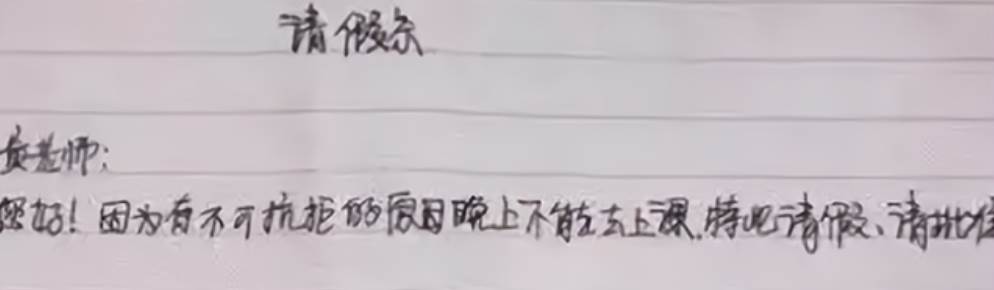 请假条
老师:
您好!因为有不可抗拒的原因晚上不能去上课.特此请假、请批准